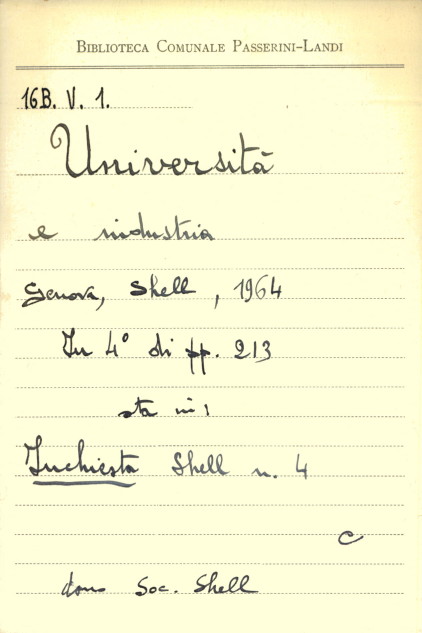 BIBLIOTECA COMUNALE PASSERINI-LANDI
16B. V. 1.
Università
e industria
Genova, Shell, 1964
In 4° di pp. 213
sta in:
Inchiesta Shell n. 4
C
dono Soc. Shell